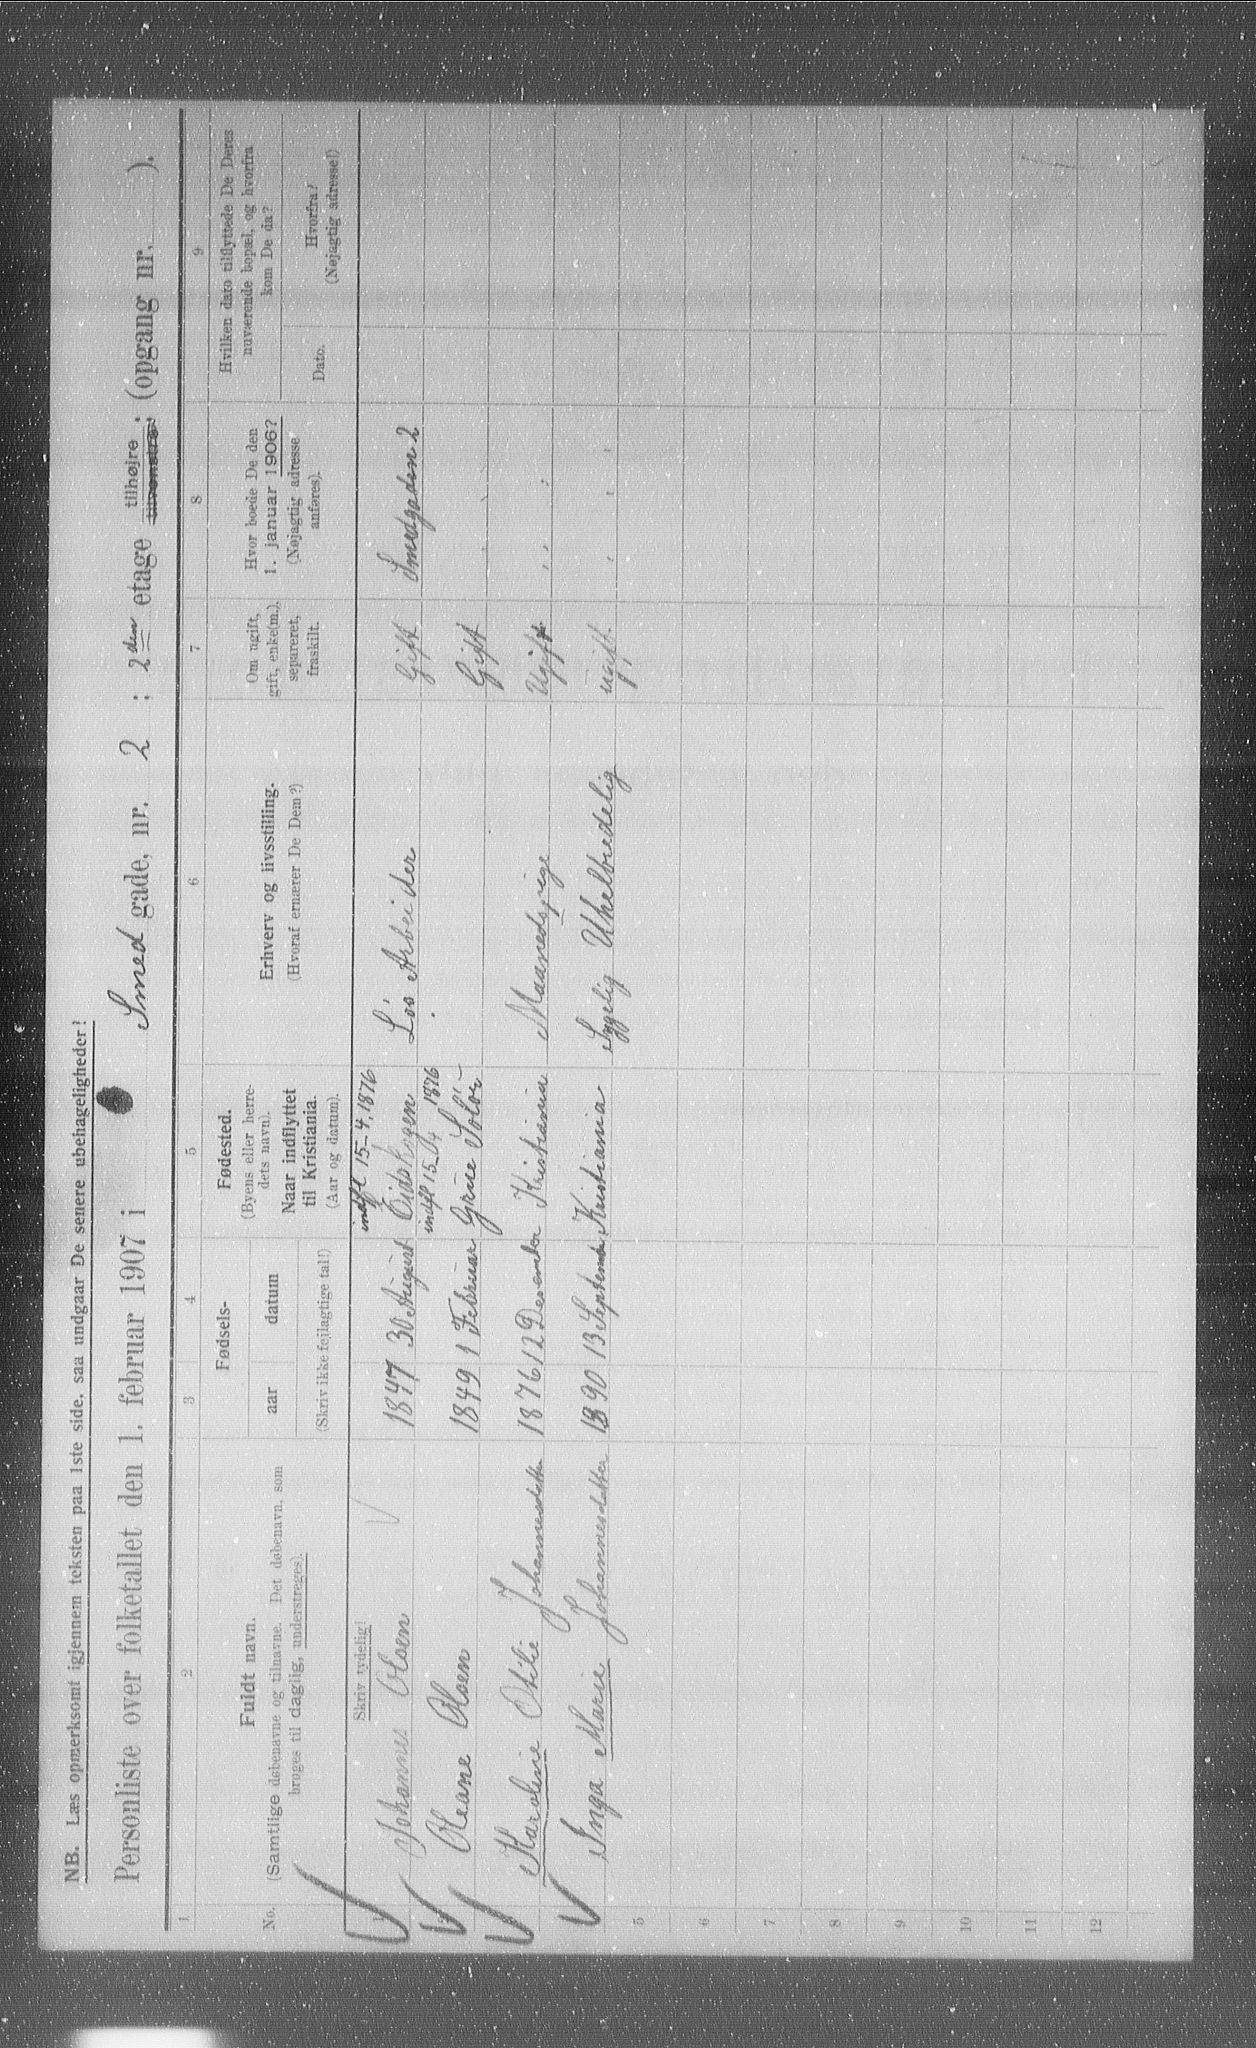 NB. Læs opmerksomt igjennem teksten paa 1ste side, saa undgaar De senere ubehageligheder!
Personliste over folketallet den 1. februar 1907 i Smed gade, nr. 2 ; 2den etage tilhøjre tilvenstre; (opgang nr. ).
1 2 3 4 5 6 7 8 9
No.
Fuldt navn.
(Samtlige døbenavne og tilnavne. Det døbenavn, som
bruges til daglig, understreges).
Fødsels-
aar datum
(Skriv ikke fejlagtige tal!)
Fødested.
(Byens eller herre-
dets navn).
Naar indflyttet
til Kristiania.
(Aar og datum).
Erhverv og livsstilling.
(Hvoraf ernærer De Dem?)
Om ugift,
gift, enke(m.),
separeret,
fraskilt.
Hvor boede De den
1. januar 1906?
(Nøjagtig adresse
anføres).
Hvilken dato tilflyttede De Deres
nuværende bopæl, og hvorfra
kom De da?
Dato.
Hvorfra?
(Nøjagtig adresse!)
Skriv tydelig!
indfl 15-4, 1876
1 Johannes Olsen 1847 30 August Eidskogen Løs Arbeider Gift Smedgaden 2
indfl 15-/4 1876
2 Oleane Olsen 1849 1 Februar Grue Solør Gift
3 Karoline Otilie Johannesdatter 1876 12 Desember Kristiania Maanedspige Ugift " "
Inga Marie Johannesdatter 1890 13 September Kristiania Sygelig Uhelbredelig ugift " " "
5
6
7
8
9
10
11
12